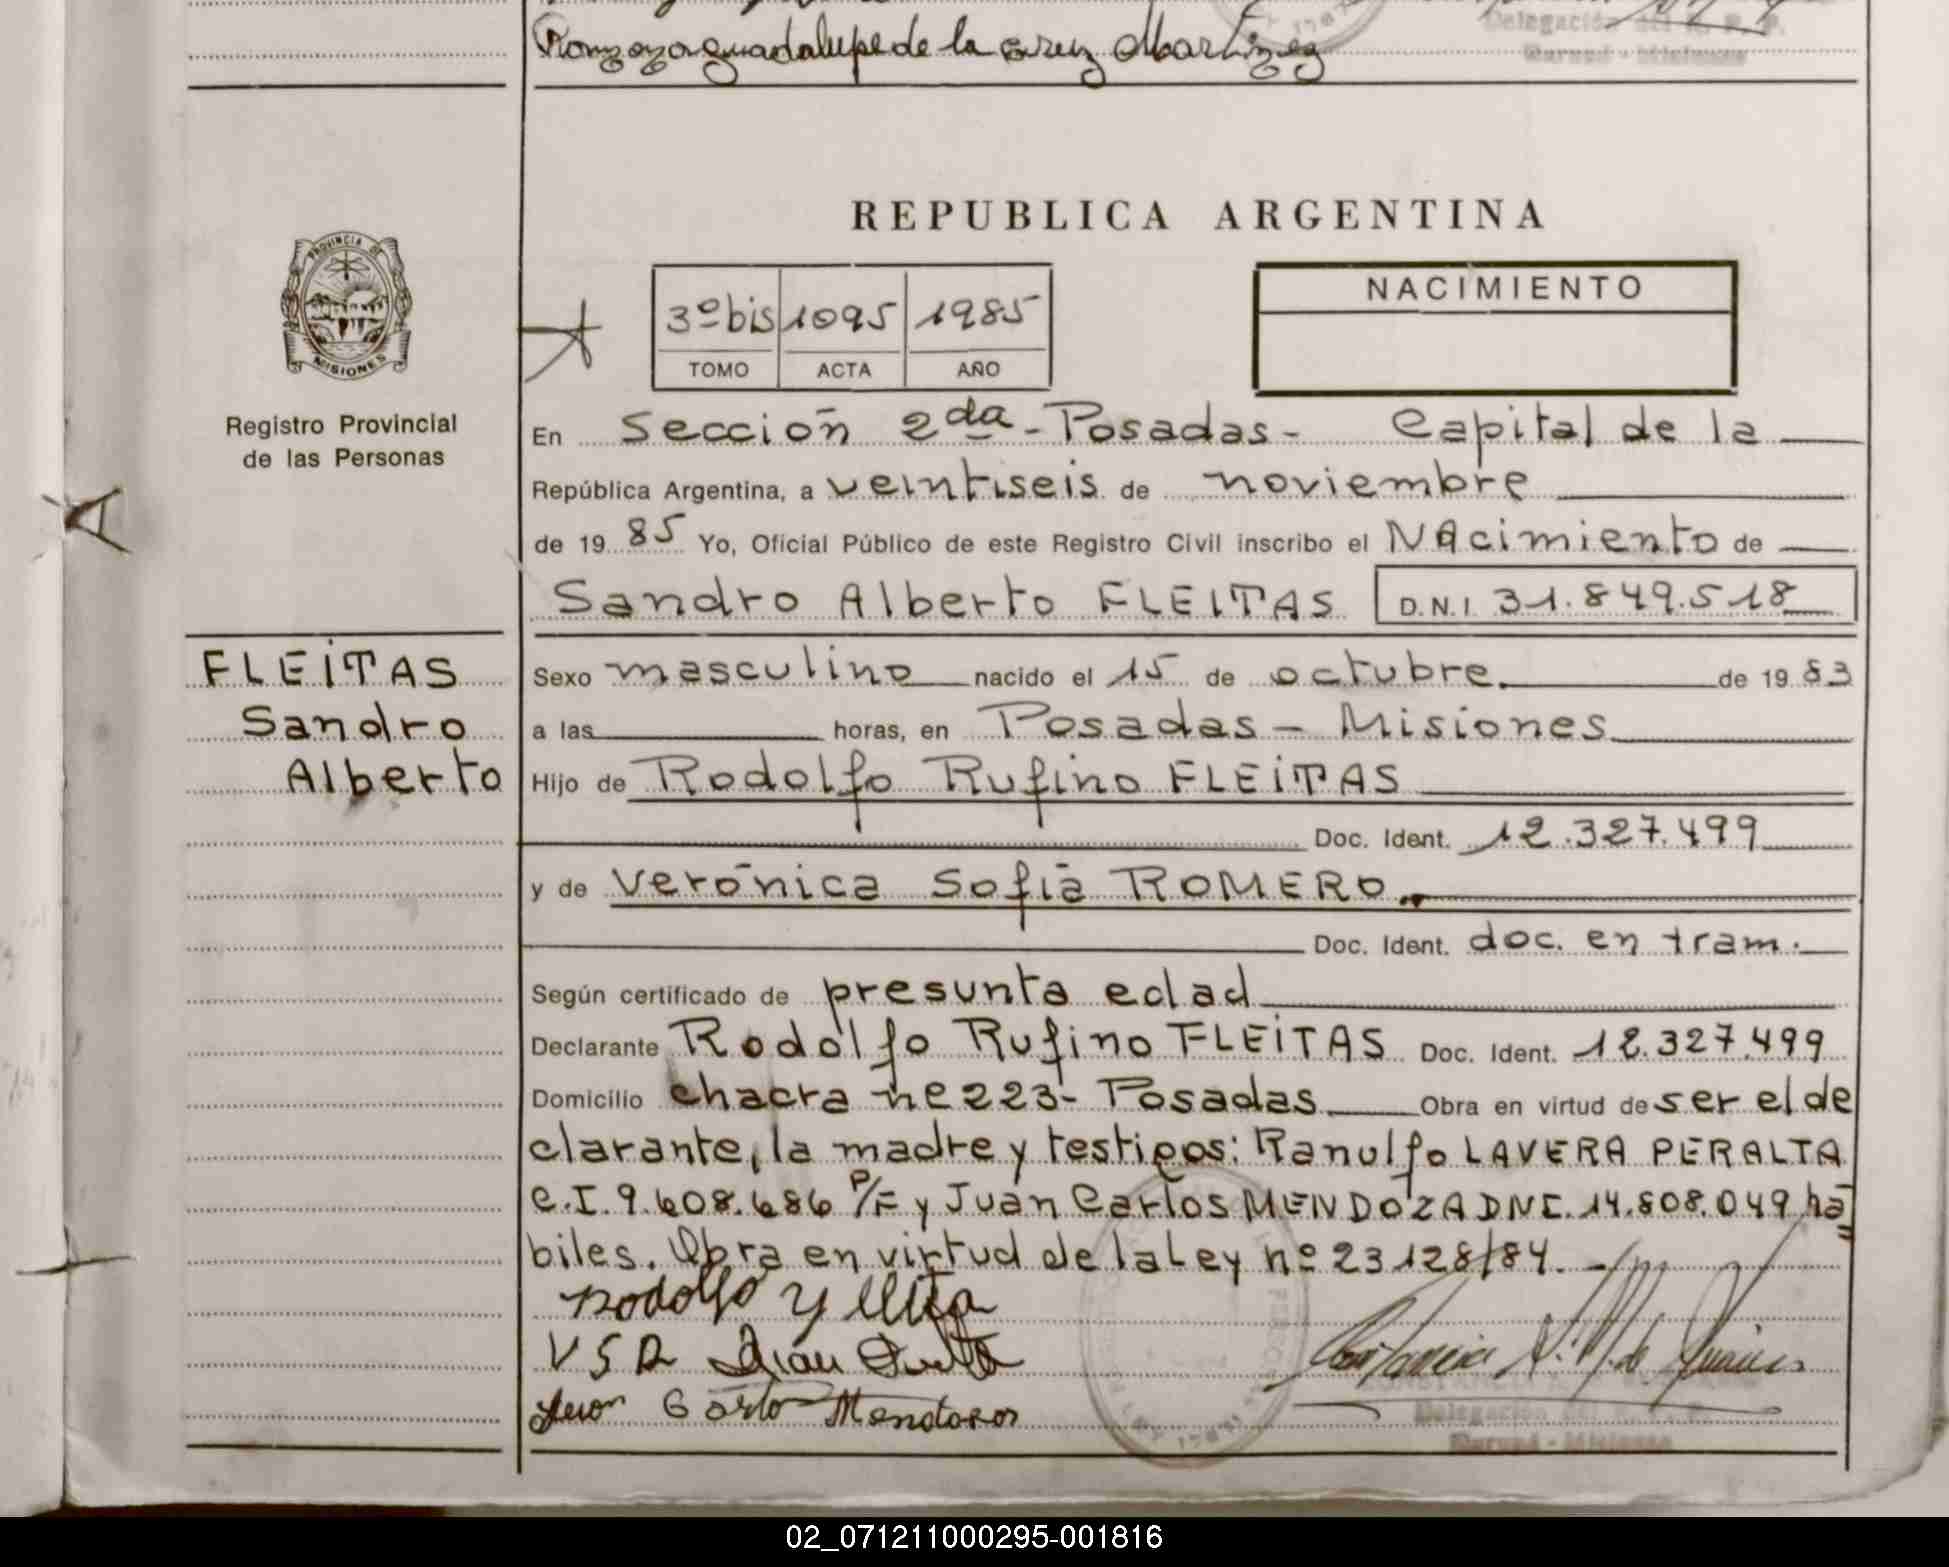 guadalupe de la Cruz Martinez
Delegación del R. P. P.
Garupá - Misiones
REPUBLICA ARGENTINA
PROVINCIA DE
MISIONES
Registro Provincial
de las Personas
3º bis 1095 1985
TOMO ACTA AÑO
NACIMIENTO
En Sección 2da - Posadas - Capital de la
República Argentina, a veintiseis de noviembre
de 19 85 Yo, Oficial Público de este Registro Civil inscribo el NAcimiento de
Sandro Alberto FLEITAS D.N.I. 31.849.518
FLEITAS
Sandro
Alberto
Sexo masculino nacido el 15 de octubre de 19 83
a las horas, en Posadas - Misiones
Hijo de Rodolfo Rufino FLEITAS
Doc. Ident. 12.327.499
y de Verónica Sofía ROMERO
Doc. Ident. doc. en tram.
Según certificado de presunta edad
Declarante Rodolfo Rufino FLEITAS Doc. Ident. 12.327.499
Domicilio chacra nº 223- Posadas Obra en virtud de ser el de
clarante, la madre y testigos: Ranulfo LAVERA PERALTA
C.I. 9.608.686 P/F y Juan Carlos MENDOZA DNI. 14.808.049 há
biles. Obra en virtud de la Ley nº 23128/84.-
Rodolfo
V S R
Juan Carlo Mendoza
Delegación del R. P. P.
Garupá - Misiones
02_071211000295-001816